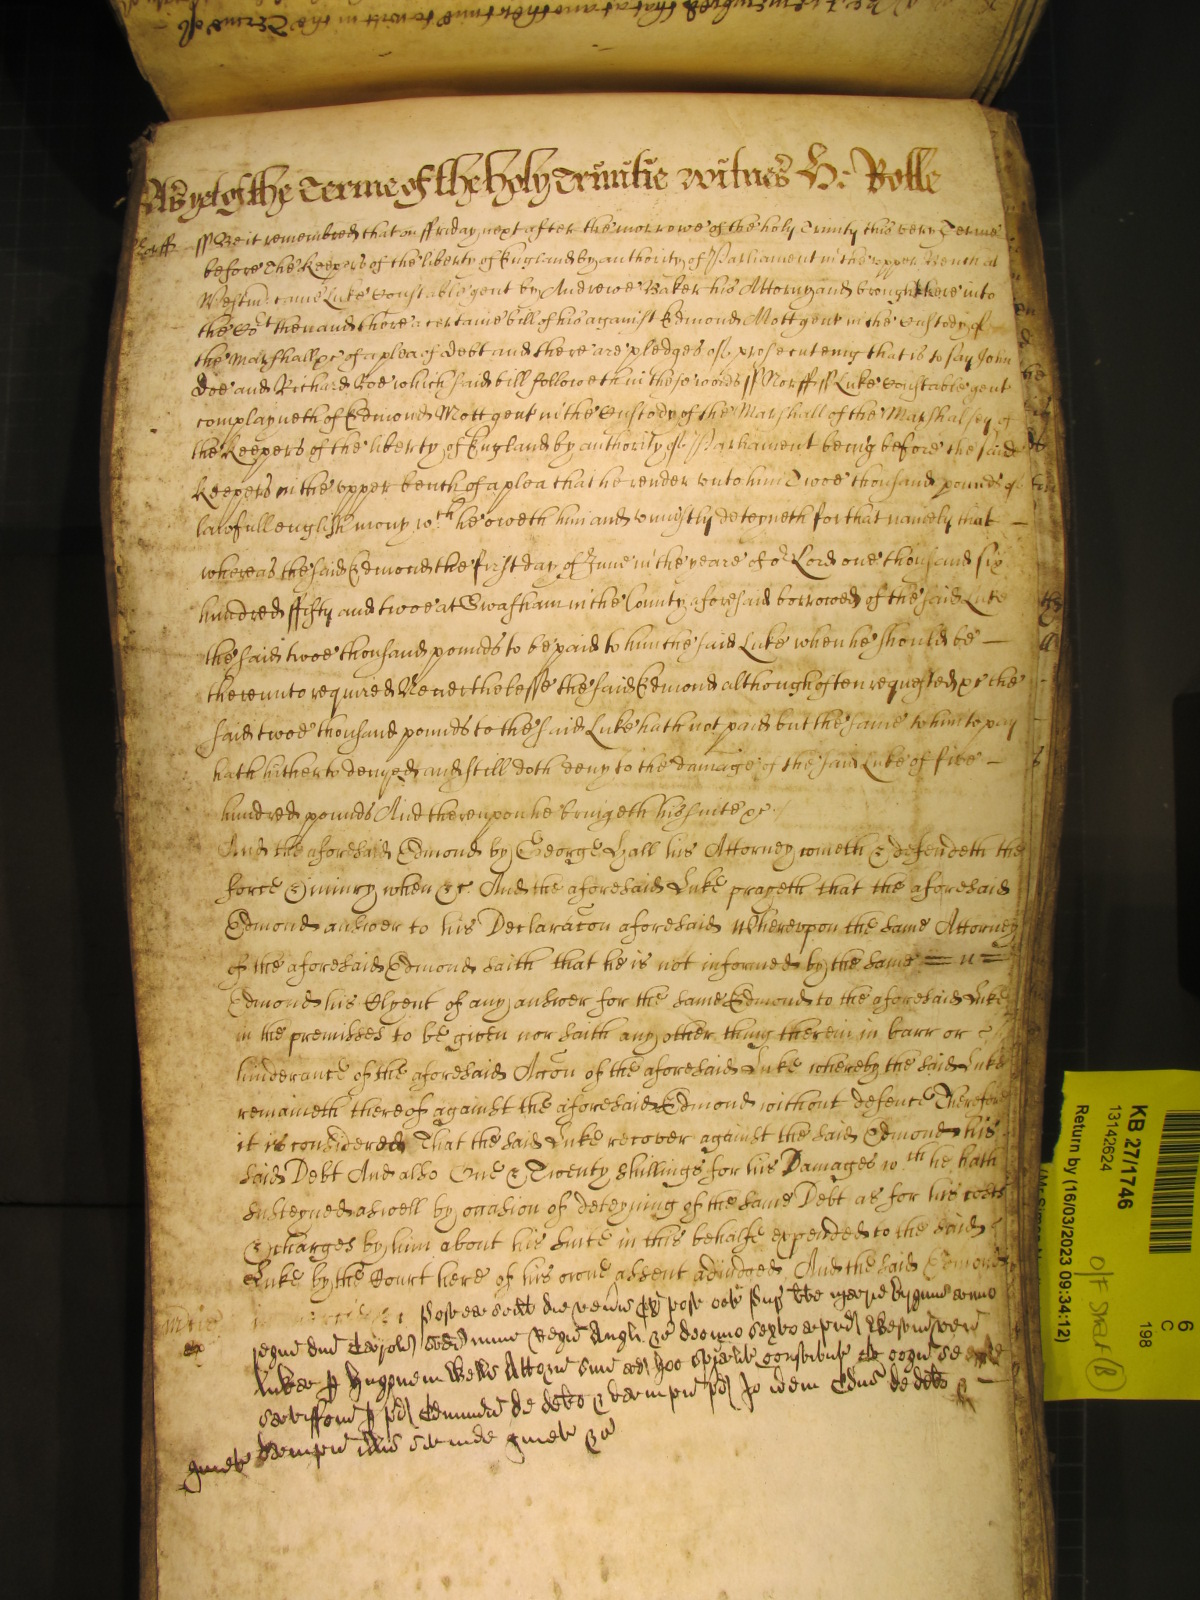 As yet of the Terme of the holy Trinitie witnes H: Rolle
Norff ss Be it remembred that on ffriday next after the morrowe of the holy Trinity this very Terme
before the Keepers of the liberty of England by authority of Parliament in the upper Bench at
Westm̄ came Luke Constable gent by Andrewe Baker his Attorny and brought here into
the Cort then and there a certaine bill of his against Edmond Mott gent in the Custody of
the Marshall &c of a plea of debt and there are pledges of prosecuteing that is to say John
Doe and Richard Roe which said bill followeth in these words ss Norff ss Luke Constable gent
complayneth of Edmond Mott gent in the Custody of the Marshall of the Marshalsey of
the Keepers of the liberty of England by authority of Parliament being before the said
Keepers in the upper bench of a plea that he render unto him Twoe thousand pounds of
lawfull english mony wch he oweth him and uniustly deteyneth for that namely that
whereas the said Edmond the first day of June in the yeare of or Lord one thousand six
hundred ffifty and twoe at Swafham in the County aforesaid borrowed of the said Luke
the said twoe thousand pounds to be paid to him the said Luke when he should be
thereunto required Neverthelesse the said Edmond although often requested &c the
said twoe thousand pounds to the said Luke hath not paid but the same to him to pay
hath hitherto denyed and still doth deny to the damage of the said Luke of five
hundred pounds And thereupon he bringeth his suite &c
And the aforesaid Edmond by George Hall his Attorney cometh & defendeth the
force & iniury when &c. And the aforesaid Luke prayeth that the aforesaid
Edmond answer to his Declaracon aforesaid Whereupon the same Attorney
of the aforesaid Edmond saith that he is not informed by the same
Edmond his Clyent of any answer for the same Edmond to the aforesaid Luke
in the premisses to be given nor saith any other thing therein in barr or
hinderance of the aforesaid Accon of the aforesaid Luke whereby the said Luke
remaineth thereof against the aforesaid Edmond without defence Therefore
it is considered That the said Luke recover against the said Edmond his
said Debt And also One & Twenty shillings for his Damages wch he hath
susteyned aswell by occasion of deteyning of the same Debt as for his costs
& charges by him about his suite in this behalfe expended to the said
Luke by the Court here of his owne assent adiudged And the said Edmond
Postea scilt die
regni dni Caroli scdi nunc Regis Angl &c decimo sexto
Lucas p Hugonem Wells Attorn suu
p pd Edmundu de debo
inde quiet &c
KB 27/1746
13142624
Return by (16/03/2023 09:34:12)
O/F Shelf B
6
C
198